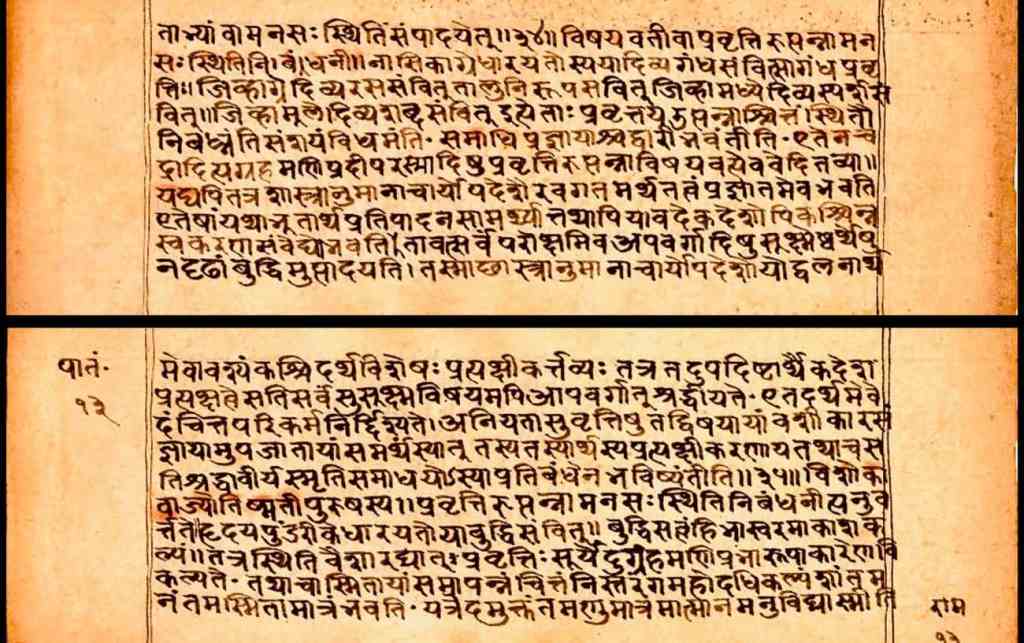 ताभ्यां वा मनसः स्थितिं संपादयेत्॥३४॥ विषयवती वा प्रवृत्तिरुत्पन्ना मन
सः स्थितिनिबंधनी॥ नासिकाग्रे धारयतोस्य या दिव्यगंधसंवित्सा गंधप्रवृ
त्तिः॥ जिव्हाग्रे दिव्यरससंवित् तालुनि रूपसंवित् जिव्हामध्ये दिव्यस्पर्शसं
वित्॥ जिव्हामूले दिव्यशब्दसंवित् इत्येताः प्रवृत्तय उत्पन्नाश्चित्तं स्थितौ
निबध्नंति संशयं विधमंति॰ समाधिप्रज्ञायाश्च द्वारीभवंतीति॰ एतेन चं
द्रादित्यग्रहमणिप्रदीपरस्मादिषु प्रवृत्तिरुत्पन्ना विषयवत्येव वेदितव्या॥
यद्यपि तत्र शास्त्रानुमानाचार्योपदेशैरवगतमर्थतत्वं प्रज्ञातमेव भवति
एतेषां यथाभूतार्थप्रतिपादनसामर्थ्यात् तथापि यावदेकदेशोपि कश्चिन्न
स्वकरणसंवेद्यो भवति। तावत्सर्वं परोक्षमिव अपवर्गादिषु सूक्ष्मेष्वर्थेषु
न दृढां बुद्धिमुत्पादयति। तस्माछास्त्रानुमानाचार्योपदेशोपोद्बलनार्थ
पातं॰
१३
मेवावश्यं कश्चिदर्थविशेषः प्रत्यक्षीकर्त्तव्यः तत्र तदुपदिष्टार्थैकदेश
प्रत्यक्षत्वे सति सर्वं सुसूक्ष्मविषयमपि आपवर्गात् श्रद्धीयते॰ एतदर्थमेवे
दं चित्तपरिकर्म निर्दिश्यते। अनियतासु वृत्तिषु तद्विषयायां वशीकारसं
ज्ञायामुपजातायां समर्थं स्यात् तस्य तस्यार्थस्य प्रत्यक्षीकरणाय तथा च स
ति श्रद्धावीर्यस्मृतिसमाधयोऽस्याप्रतिबंधेन भविष्यंतीति॥३५॥ विशोका
वा ज्योतिष्मती पुरुषस्य॥ प्रवृत्तिरुत्पन्ना मनसः स्थितिनिबंधनीत्यनुव
र्त्तते हृदयपुंडरीके धारयतो या बुद्धिसंवित्॥ बुद्धिसत्वं हि भास्वरमाकाशक
ल्पं॥ तत्र स्थितिवैशारद्यात् प्रवृत्तिः सूर्येंदुग्रहमणिप्रभारूपाकारेण वि
कल्पते॰ तथा चास्मितायां समापन्नं चित्तं निस्तरंगमहोदधिकल्पं शांतम
नंतमस्मितामात्रं भवति॰ यत्रेदमुक्तं तमणुमात्रमात्मानमनुविद्यास्मीति
राम
१३